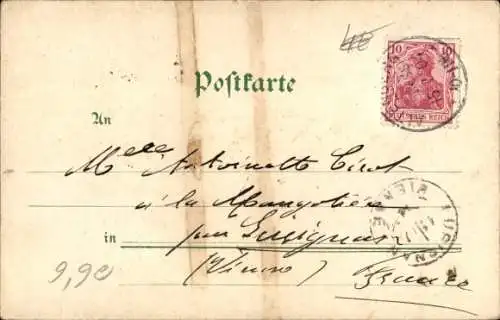 10 10
DEUTSCHES REICH
Postkarte
An
Melle Antoinette
à la
in par Lusignan
(Vienne)
France
LUSIGNAN
VIENNE
9,90